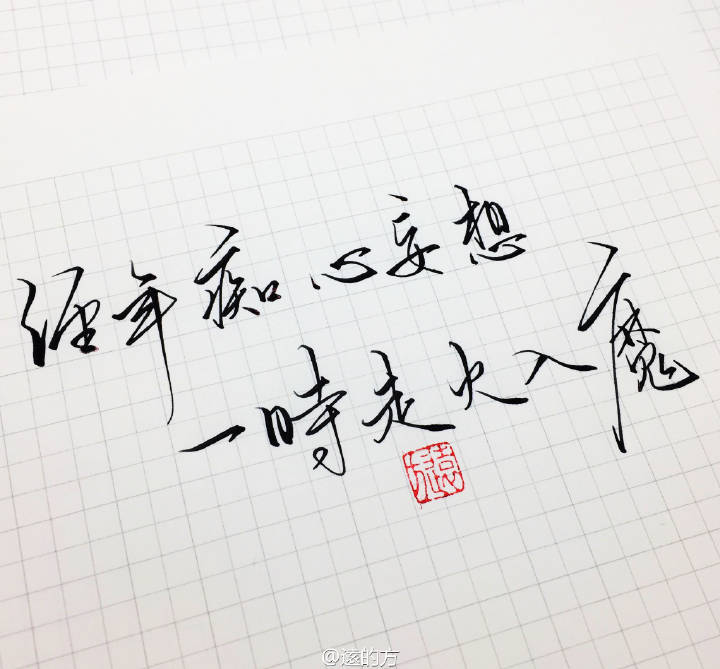 经年痴心妄想
一時走火入魔
@遠的方